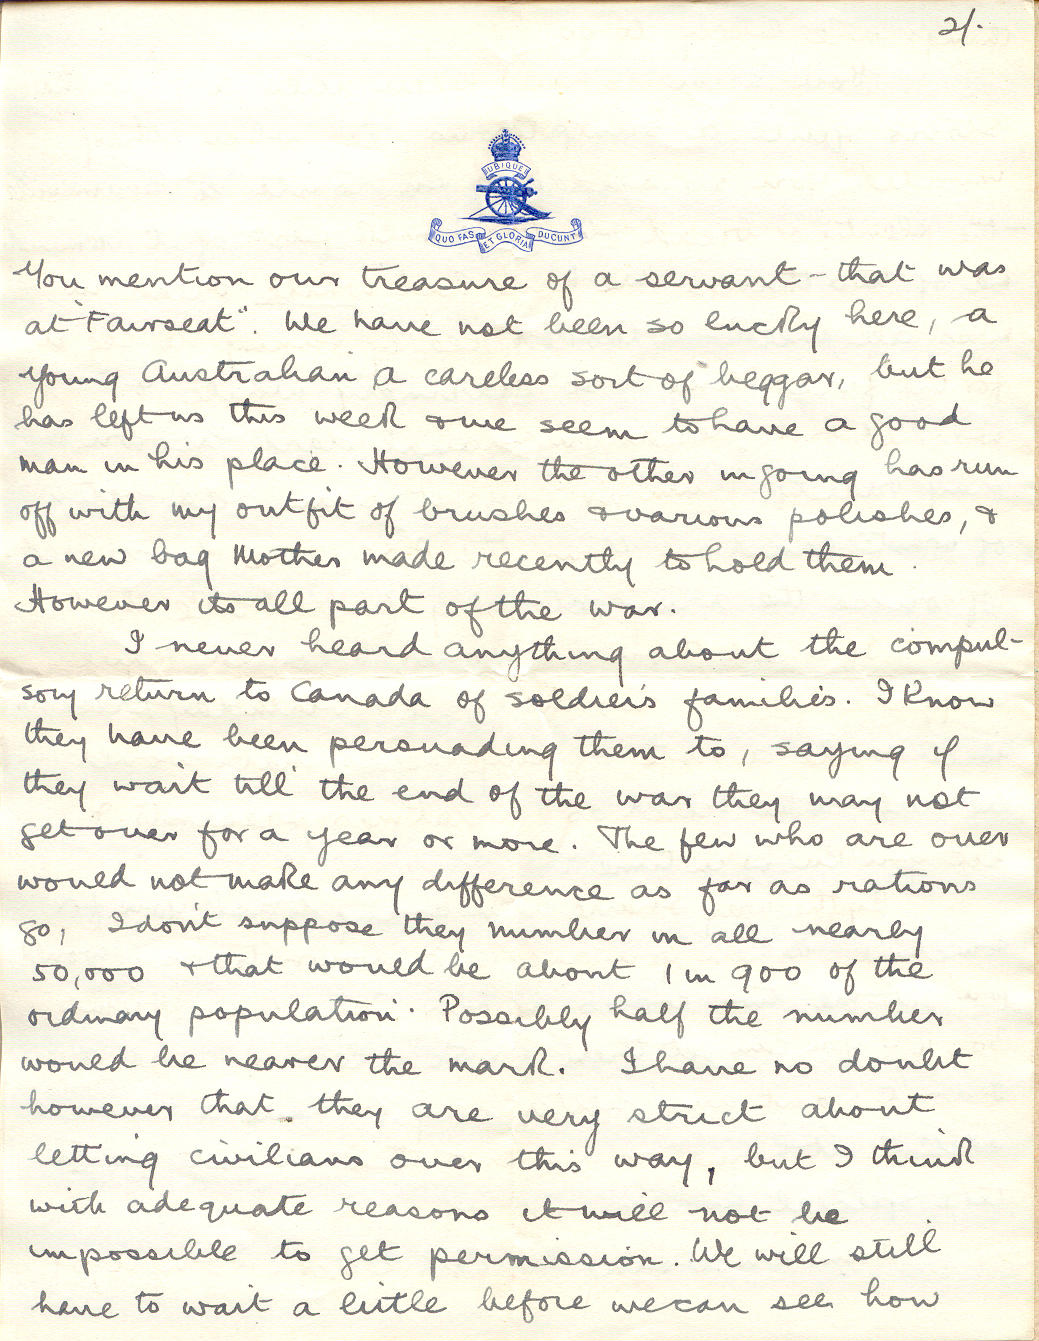 2/.
UBIQUE
QUO FAS ET GLORIA DUCUNT
You mention our treasure of a servant - that was
at "Fairseat". We have not been so lucky here, a
young Australian, a careless sort of beggar, but he
has left us this week & we seem to have a good
man in his place. However the other in going has run
off with my outfit of brushes & various polishes, &
a new bag Mother made recently to hold them.
However its all part of the war.
I never heard anything about the compul-
sory return to Canada of soldier's families. I know
they have been persuading them to, saying if
they wait till the end of the war they may not
get over for a year or more. The few who are over
would not make any difference as far as rations
go, I don't suppose they number in all nearly
50,000 & that would be about 1 in 900 of the
ordinary population. Possibly half the number
would be nearer the mark. I have no doubt
however that they are very strict about
letting civilians over this way, but I think
with adequate reasons it will not be
impossible to get permission. We will still
have to wait a little before we can see how